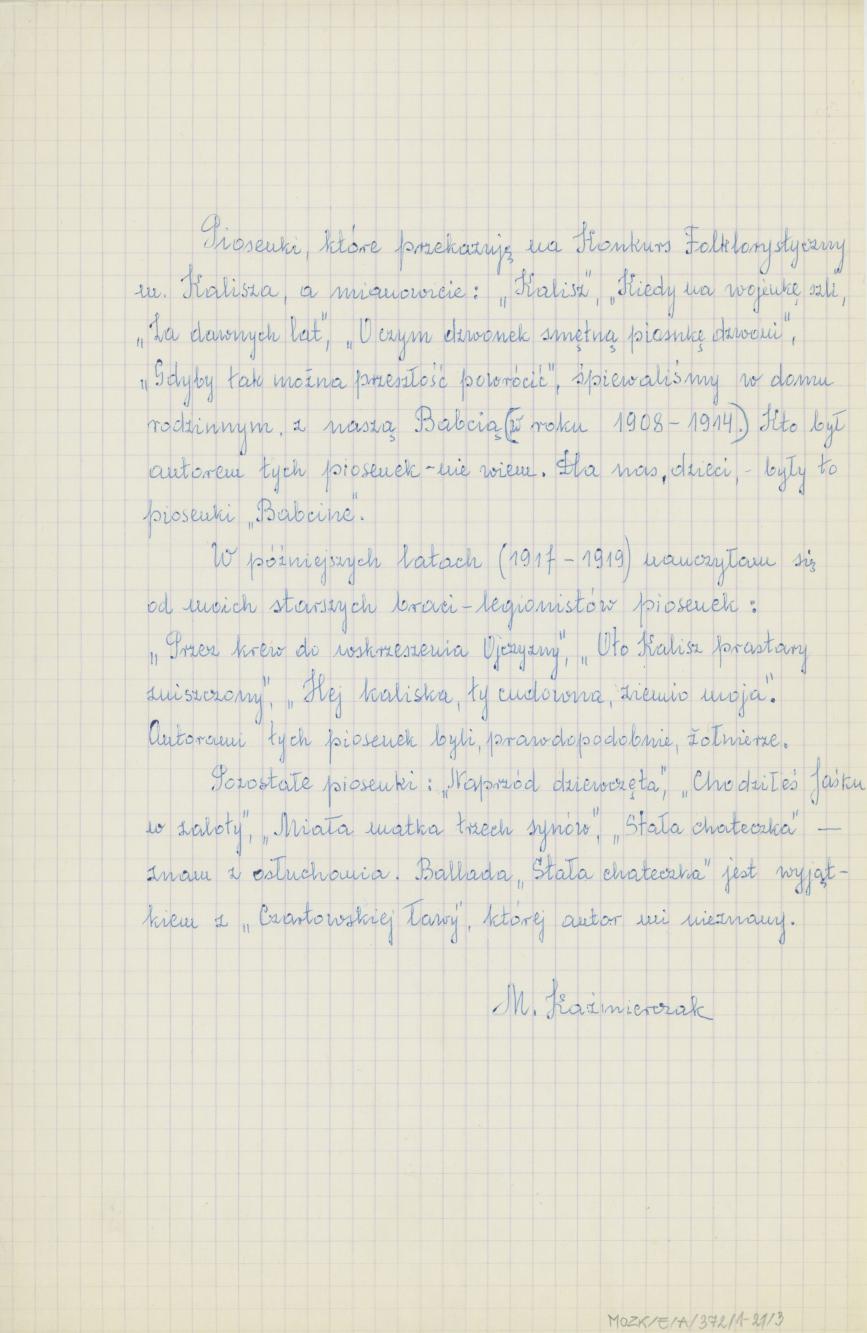 Piosenki, które przekazuję na Konkurs Folklorystyczny
m. Kalisza, a mianowicie: „Kalisz”, „Kiedy na wojenkę szli”,
„Za dawnych lat”, „O czym dzwonek smętną piosnkę dzwoni”,
„Gdyby tak można przeszłość powrócić”, śpiewaliśmy w domu
rodzinnym, z naszą Babcią (w roku 1908-1914.) Kto był
autorem tych piosenek - nie wiem. Dla nas, dzieci, - były to
piosenki „Babcine”.
W późniejszych latach (1917-1919) nauczyłam się
od moich starszych braci-legionistów piosenek:
„Przez krew do wskrzeszenia Ojczyzny”, „Oto Kalisz prastary
zniszczony”, „Hej kaliska, ty cudowna, ziemio moja”.
Autorami tych piosenek byli, prawdopodobnie, żołnierze.
Pozostałe piosenki: „Naprzód dziewczęta”, „Chodziłeś Jaśku
w zaloty”, „Miała matka trzech synów”, „Stała chateczka” —
znam z osłuchania. Ballada „Stała chateczka” jest wyjąt-
kiem z „Czartowskiej Ławy”, której autor mi nieznany.
M. Kaźmierczak
MOZK/E/A/372/1-21/3